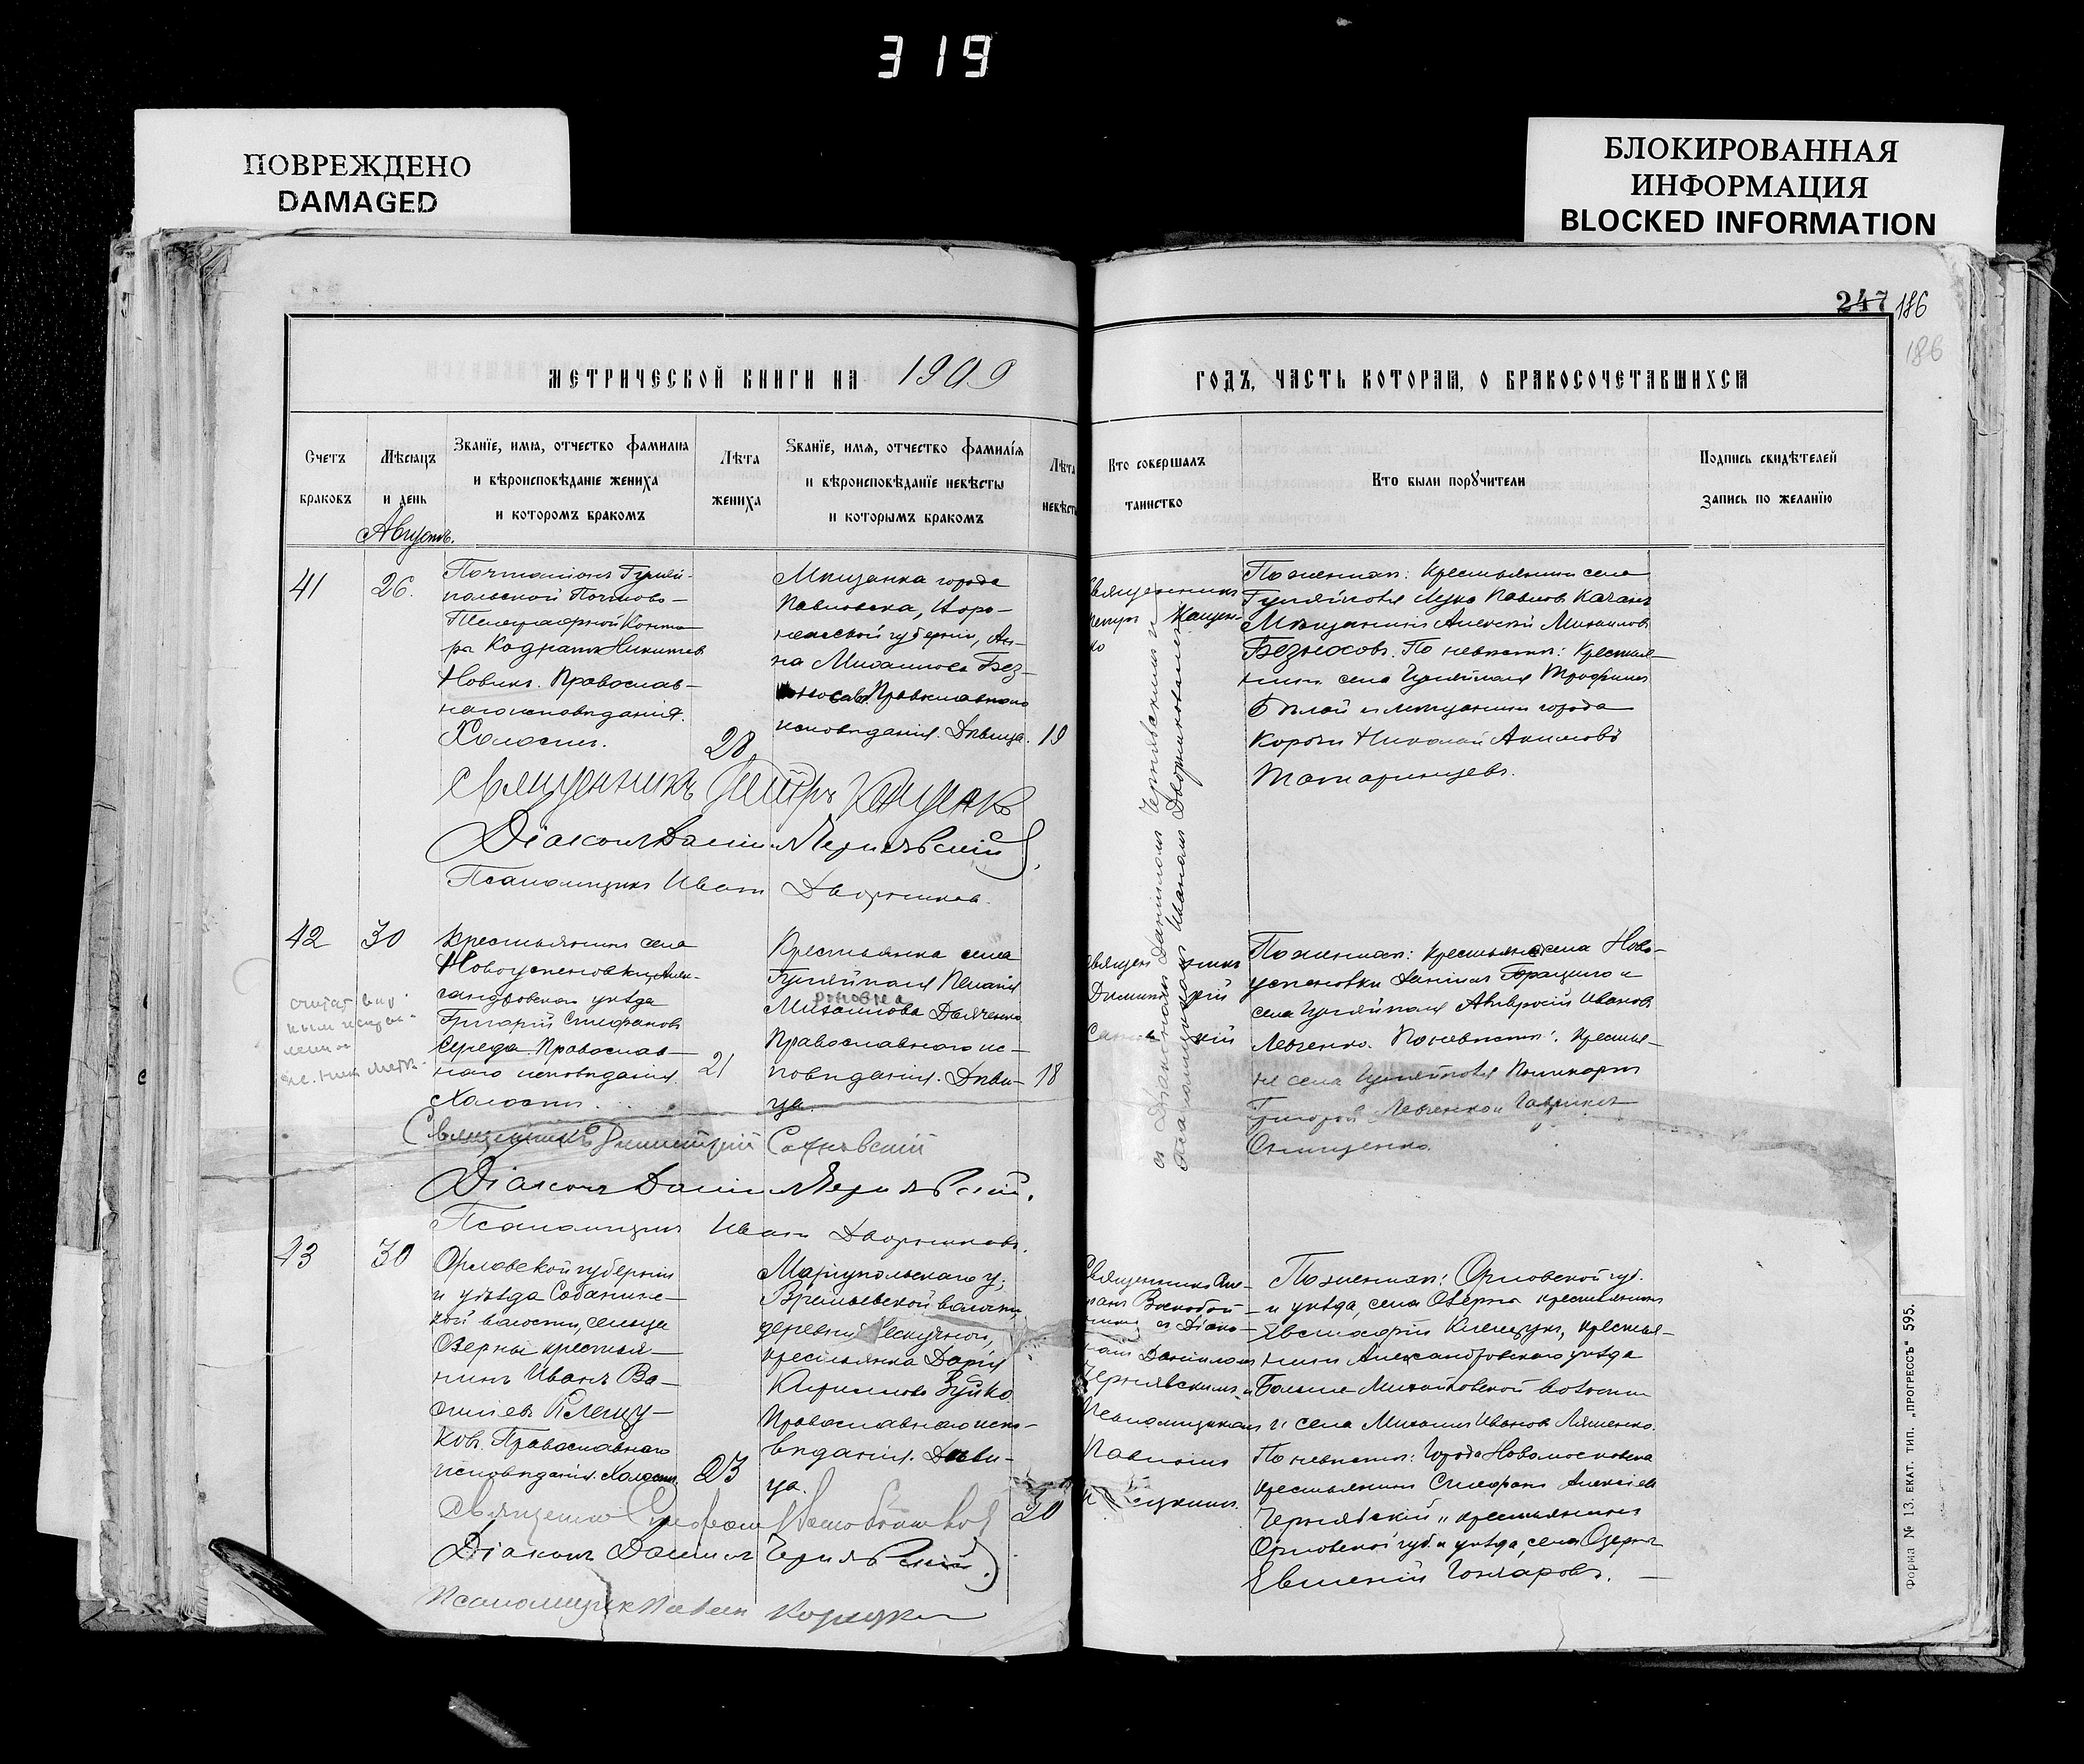 319
ПОВРЕЖДЕНО
DAMAGED
БЛОКИРОВАННАЯ
ИНФОРМАЦИЯ
BLOCKED INFORMATION
247 186
186
МЕТРИЧЕСКОЙ КНИГИ НА 1909
ГОДЪ, ЧАСТЬ КОТОРАЯ, О БРАКОСОЧЕТАВШИХСЯ
Счетъ
браковъ
Мѣсяцъ
и день
Званїе, имя, отчество фамилия
и вѣроисповѣданіе жениха
и которомъ бракомъ
Лѣта
жениха
Званїе, имя, отчество фамилїя
и вѣроисповѣданїе невѣсты
и которымъ бракомъ
Лѣта
невѣсты
Кто совершалъ
таинство
Кто были порꙋчители
Подпись свидѣтелей
запись по желанїю
Августъ.
41
26.
Почталіонъ Гуляй-
польской Почтово-
Телеграфной Конто
ры Кодратъ Никитинъ
Новикъ. Православ-
наго исповѣданія.
Холостъ.
28
Мѣщанка города
Павловска, Воро-
нежской губерніи, Ан-
на Михаилова Без-
носова. Православнаго
исповѣданія. Дѣвица.
19
Священникъ
Петръ Кащен-
ко
съ Діакономъ Даніиломъ Чернявскимъ и
Псаломщикомъ Иваномъ Дворниковымъ
По женихѣ: Крестьянинъ села
Гуляйполя Лука Павловъ Качанъ
Мѣщанинъ Алексѣй Михаиловъ
Безносовъ. По невѣстѣ: Крестья-
нинъ села Гуляйполя Трофимъ
Бѣлай и мѣщанинъ города
Корочи Николай Акимовъ
Татаринцевъ.
Священникъ Петръ Кащенко
Діаконъ Даніилъ Чернявскій
Псаломщикъ Иванъ Дворниковъ.
42
30
Крестьянинъ села
Новоуспеновки, Алек-
сандровскаго уѣзда
Григорій Стефановъ
Середа. Православ-
наго исповѣданія.
Холостъ.
21
Крестьянка села
Гуляйполя Пелагія
Михаилова Дьяченко
Православнаго ис-
повѣданія. Дѣви-
ца.
18
Священникъ
Димитрій
По женихѣ: Крестьяне села Ново-
успеновки Даніилъ и
села Гуляйполя Амвросій Ивановъ
Левченко. По невѣстѣ: Крестья-
не села Гуляйполя Поликарпъ
Григоровъ Левченко и Гавріилъ
Онищенко.
Священникъ Димитрій
Діаконъ Даніилъ Чернявскій.
Псаломщикъ Иванъ Дворниковъ.
43
30
Орловской губерніи
и уѣзда
кой волости, сельца
Озерны крестья-
нинъ Иванъ Ва-
силіевъ Клещу-
ковъ. Православнаго
исповѣданія. Холостъ.
23
Маріупольскаго у.,
Времьевской волости,
деревни Нескучной,
крестьянка Дарія
Кириллова Зуйко.
Православнаго испо-
вѣданія. Дѣви-
ца.
20
Священникъ
Воскобой-
съ Діако-
номъ Даніиломъ
Чернявскимъ и
Псаломщикомъ
Павломъ
По женихѣ: Орловской губ.
и уѣзда, села Озерна крестьянинъ
Евстафій Клещукъ, крестья-
нинъ Александровскаго уѣзда
Больше Михайловской волости
и села Михаилъ Ивановъ Ляшенко.
По невѣстѣ: Города Новомосковска
крестьянинъ Стефанъ Алексіевъ
Чернявскій и крестьянинъ
Орловской губ. и уѣзда, села Озерна
Евгеній Гончаровъ.
Діаконъ Даніилъ Чернявскій.
Псаломщикъ Павелъ
Форма № 13. ЕКАТ. ТИП. „ПРОГРЕССЪ" 595.